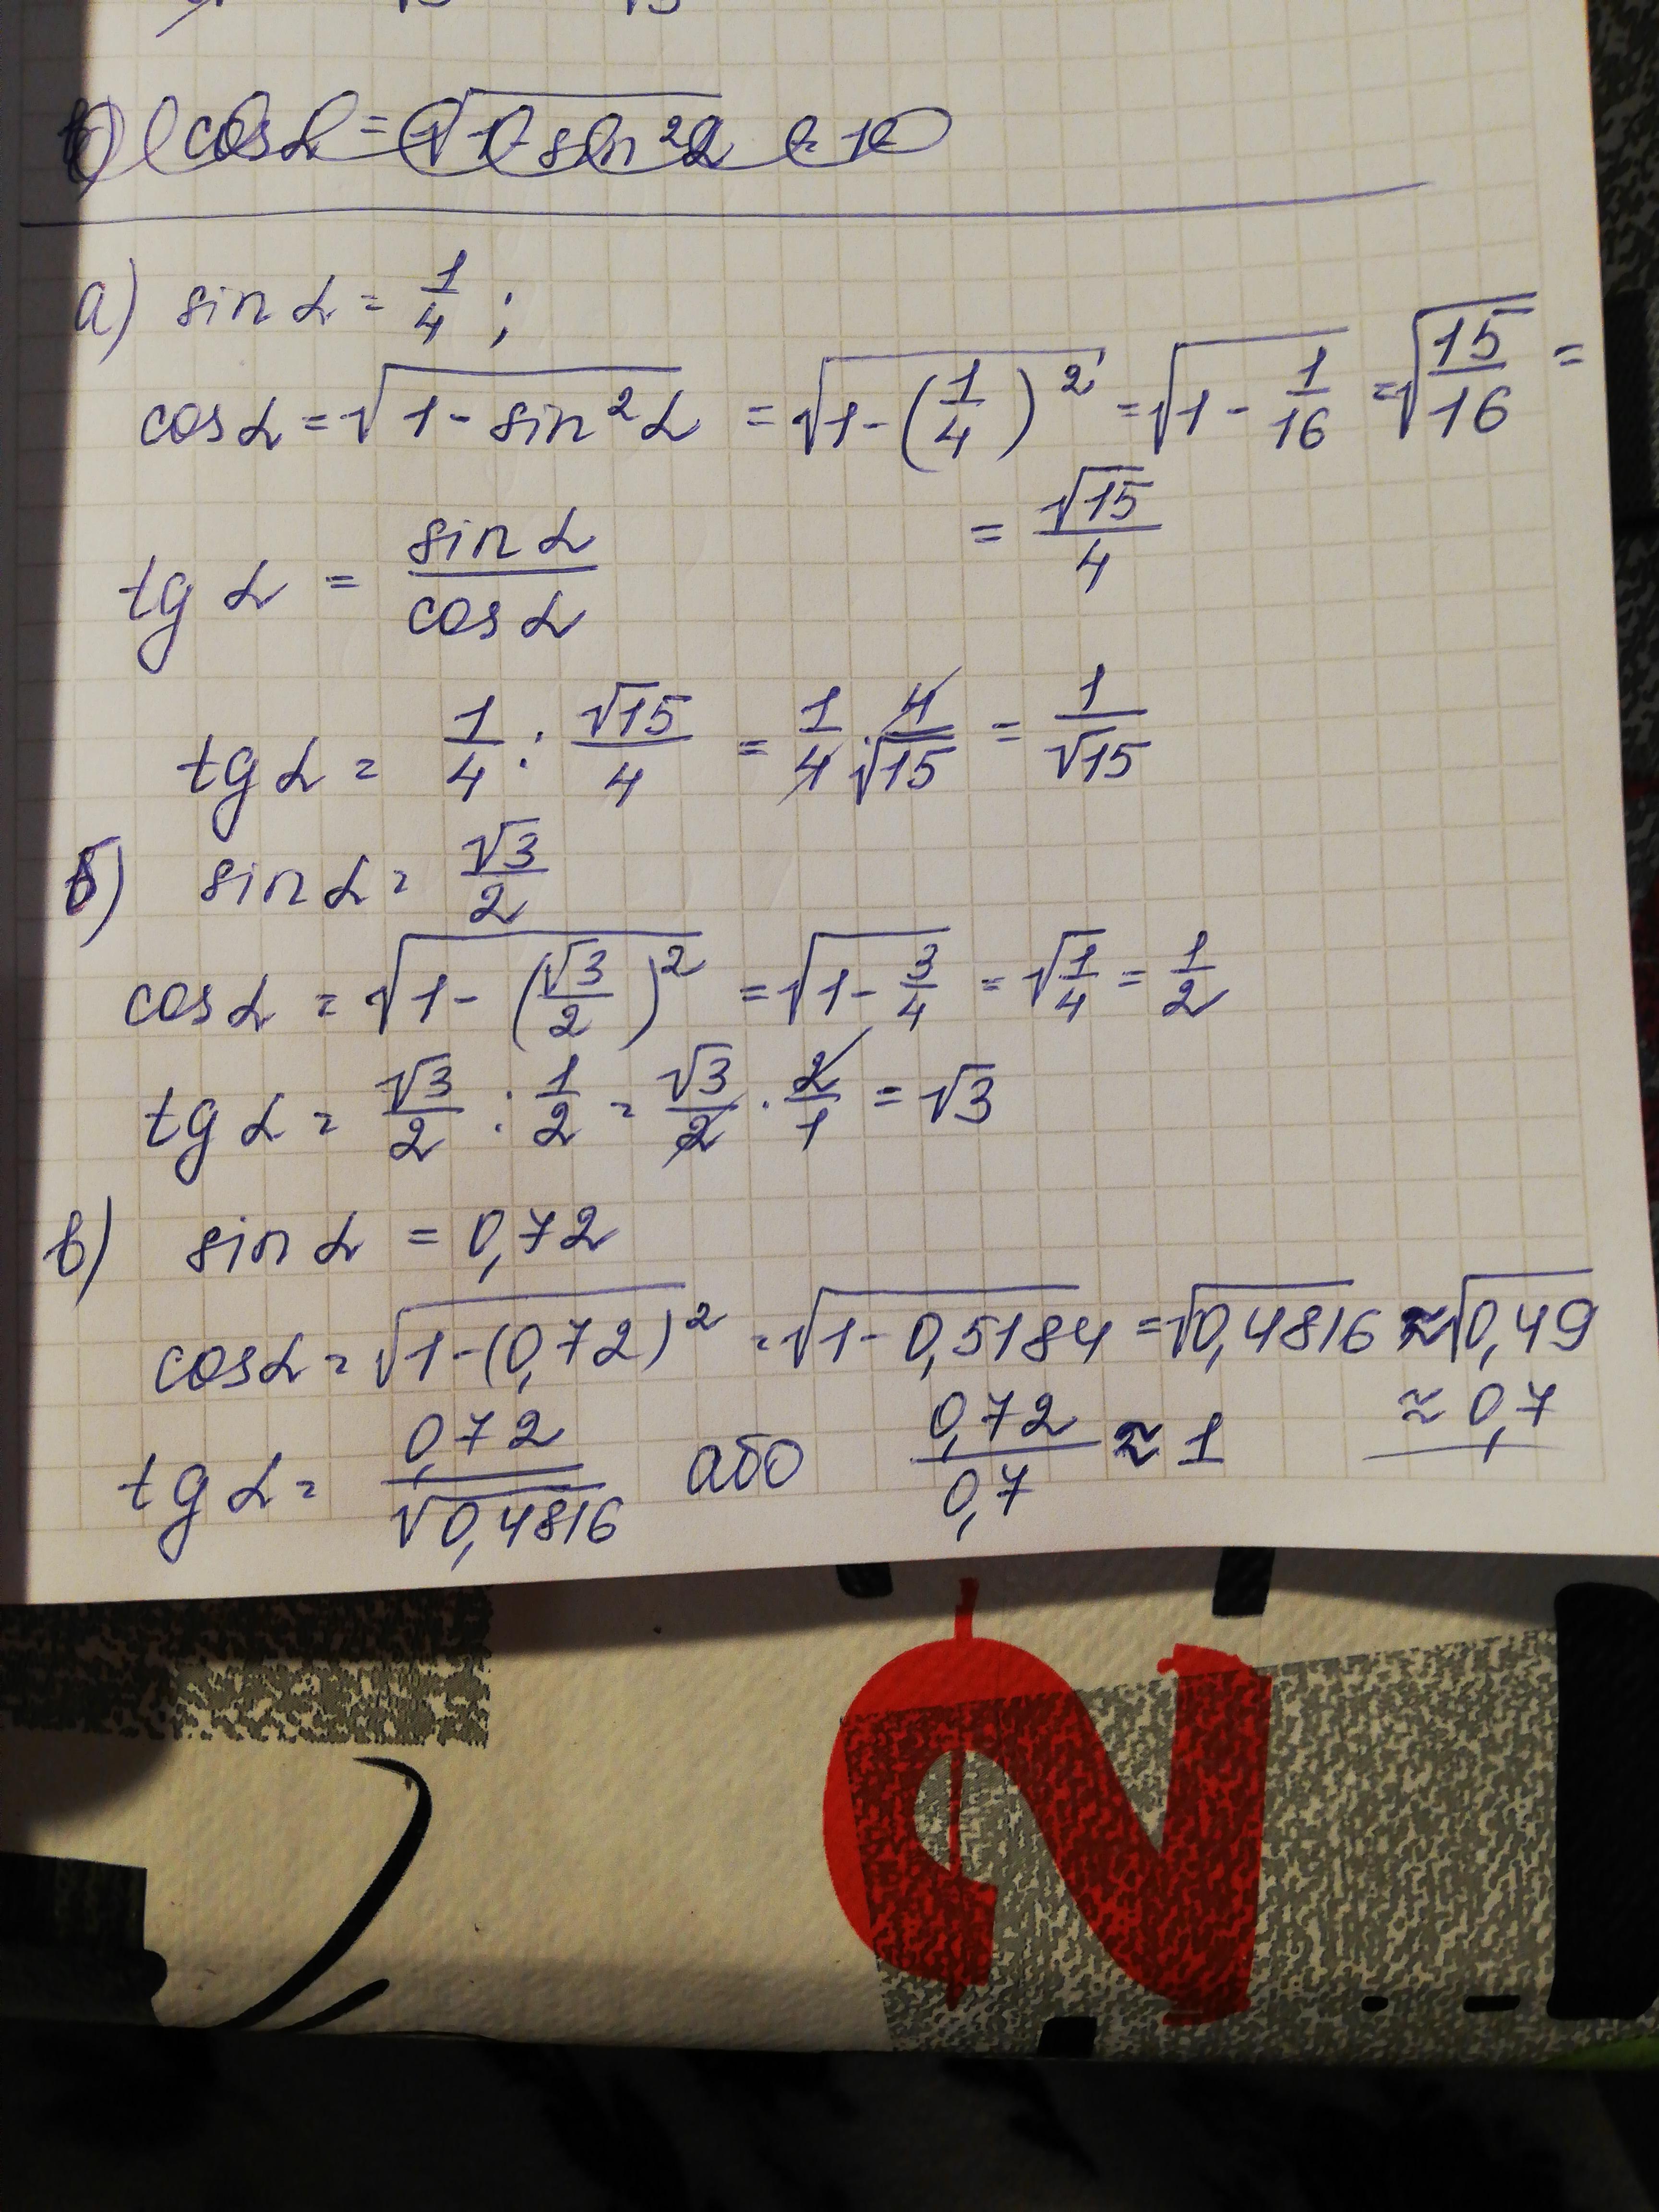 cosα = √1-sin²α
а) sin α = 1/4 ;
cos α = √(1 - sin²α) = √(1-(1/4)²) = √(1 - 1/16) = √(15/16) =
= √15/4
tg α = sin α / cos α
tg α = 1/4 : √15/4 = 1/4 · 4/√15 = 1/√15
б) sin α = √3/2
cos α = √(1 - (√3/2)²) = √(1 - 3/4) = √(1/4) = 1/2
tg α = √3/2 : 1/2 = √3/2 · 2/1 = √3
в) sin α = 0,72
cos α = √(1-(0,72)²) = √(1-0,5184) = √0,4816 ≈ √0,49
≈ 0,7
tg α = 0,72/√0,4816 або 0,72/0,7 ≈ 1